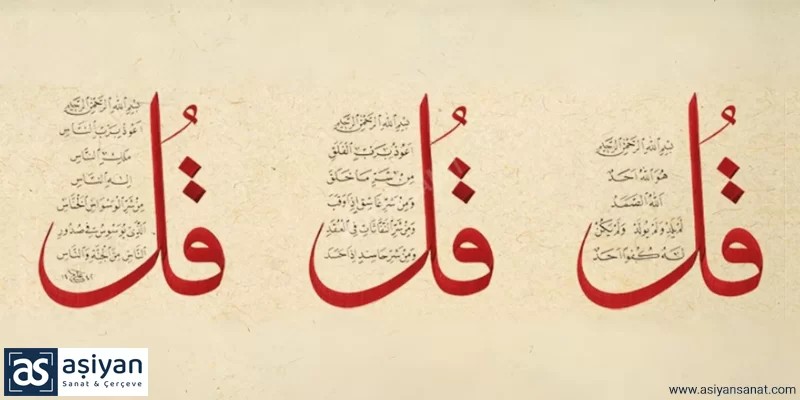 قُل
بِسْمِ اللهِ الرَّحْمٰنِ الرَّحِيمِ
هُوَ اللهُ اَحَدٌ
اَللهُ الصَّمَدُ
لَمْ يَلِدْ وَلَمْ يُولَدْ وَلَمْ يَكُنْ
لَهُ كُفُوًا اَحَدٌ
قُل
بِسْمِ اللهِ الرَّحْمٰنِ الرَّحِيمِ
اَعُوذُ بِرَبِّ الْفَلَقِ
مِنْ شَرِّ مَا خَلَقَ
وَمِنْ شَرِّ غَاسِقٍ اِذَا وَقَبَ
وَمِنْ شَرِّ النَّفَّاثَاتِ فِي الْعُقَدِ
وَمِنْ شَرِّ حَاسِدٍ اِذَا حَسَدَ
قُل
بِسْمِ اللهِ الرَّحْمٰنِ الرَّحِيمِ
اَعُوذُ بِرَبِّ النَّاسِ
مَلِكِ النَّاسِ
اِلٰهِ النَّاسِ
مِنْ شَرِّ الْوَسْوَاسِ الْخَنَّاسِ
اَلَّذِي يُوَسْوِسُ فِي صُدُورِ
النَّاسِ مِنَ الْجِنَّةِ وَالنَّاسِ
as aşiyan
Sanat & Çerçeve
www.asiyansanat.com